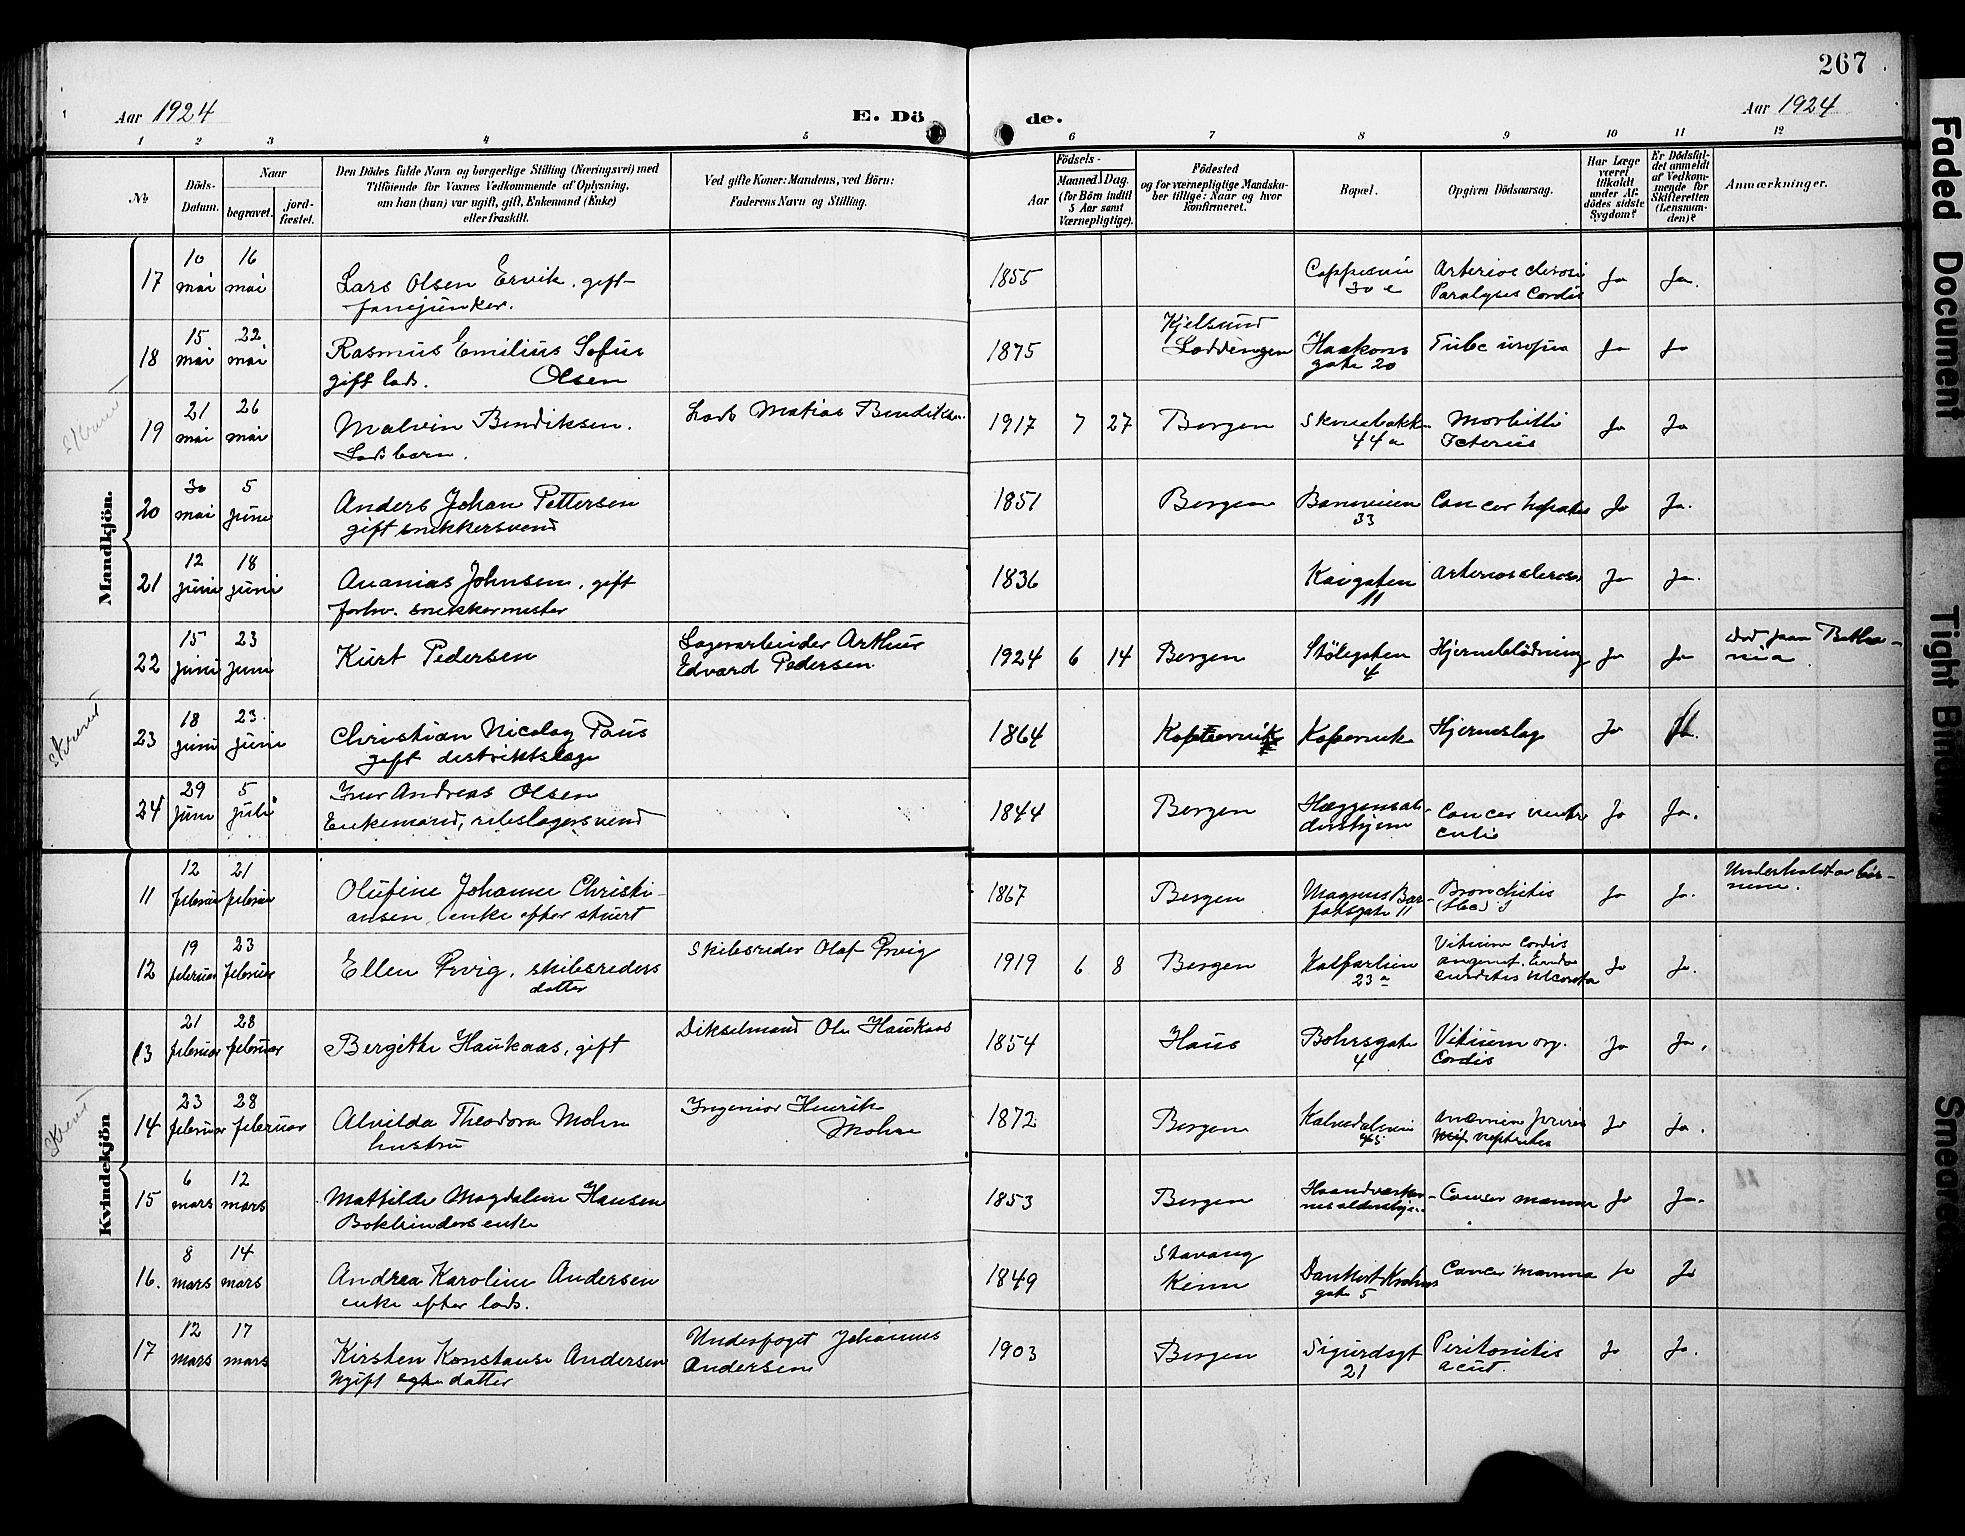 267
Aar 1924
E. Dö de.
Aar 1924
1 2 3 4 5 6 7 8 9 10 11 12
No
Döds-Datum.
Naar
begravet.
jord-fæstet.
Den Dödes fulde Navn og borgerlige Stilling (Næringsvei) med
Tilföiende for Voxnes Vedkommende af Oplysning,
om han (hun) var ugift, gift, Enkemand (Enke)
eller fraskilt.
Ved gifte Koner: Mandens, ved Börn:
Faderens Navn og Stilling.
Födsels-
Aar
Maaned Dag.
(for Börn indtil
5 Aar samt
Værnepligtige).
Födested
og for værnepligtige Mandska-
ber tillige: Naar og hvor
konfirmeret.
Bopæl.
Opgiven Dödsaarsag.
Har Læge
været
tilkaldt
under Af-
dödes sidste
Sygdom?
Er Dödsfal-
det anmeldt
af Vedkom-
mende for
Skifteretten
(Lensman-
den)?
Anmærkninger.
Mandkjön.
17 10 mai 16 mai Lars Olsen Ervik, gift 1855 Arteriosclerosi Ja Ja.
fanejunker. 30 e Paralyses Cordis
18 15 mai 22 mai Rasmus Emilius Sofus 1875 Kjelsund Loddingen Haakons gate 20 Ja Ja
gift lods. Olsen
19 21 mai 26 mai Malvin Bendiksen. Lods Matias Bendiksen 1917 7 27 Bergen 44 a Morbilli Icterus Ja Ja
Lods barn.
20 30 mai 5 juni Anders Johan Pettersen 1851 Bergen Baneveien 33 Cancer hepatis Ja Ja.
gift snekkersvend
21 12 juni 18 juni Ananias Johnsen, gift 1836 Kaigaten 11 Arteriosclerose Ja Ja.
forhv. snekkermester
22 15 juni 23 juni Kurt Pedersen Lagerarbeider Arthur 1924 6 14 Bergen Stölegaten 4 Hjerneblödning Ja Ja Död paa Betha-
Edvard Pedersen nia.
23 18 juni 23 juni Christian Nicolay Paus 1864 Kopervik Kopervik Hjerneslag Ja Ja.
gift distriktslæge
24 29 juni 5 juli Iver Andreas Olsen 1844 Bergen Hæggensal-
Enkemand, rebslagersvend dershjem Cancer ventri-
culi Ja Ja.
Kvindekjön
11 12 februar 21 februar Olufine Johanne Christi- 1867 Bergen Magnus Bar-
ansen, enke efter stuert fotsgate 11 Bronchitis Ja Ja. Underholdt av
12 19 februar 23 februar Ellen Ørvig, skibsreders Skibsreder Olaf Ørvig 1919 6 8 Bergen Kalfarlien 23 a Vitium Cordis Ja Ja.
datter
13 21 februar 28 februar Bergithe Haukaas, gift Dikselmand Ole Haukaas 1854 Haus Bohrsgate 4 Vitium org. Cordis Ja Ja.
14 23 februar 28 februar Alvilda Theodora Mohn Ingeniør Henrik Mohn 1872 Bergen Kalvedalsvei 45 Ja Ja.
hustru
15 6 mars 12 mars Mathilde Magdalene Hansen 1853 Bergen Haandværker-
Bokbinders enke nes aldershjem Cancer mamma Ja Ja.
16. 8 mars 14 mars Andrea Karoline Andersen 1849 Stavang Kinn Dankert Krohns gate 5 Cancer mamma Ja Ja
enke efter lods.
17 12 mars 17 mars Kirsten Konstanse Andersen Underfoget Johannes 1903 Bergen Sigurdsgt 21 Peritonitis acut. Ja Ja.
Ugift datter Andersen
Faded Document
Tight Binding
Smeared